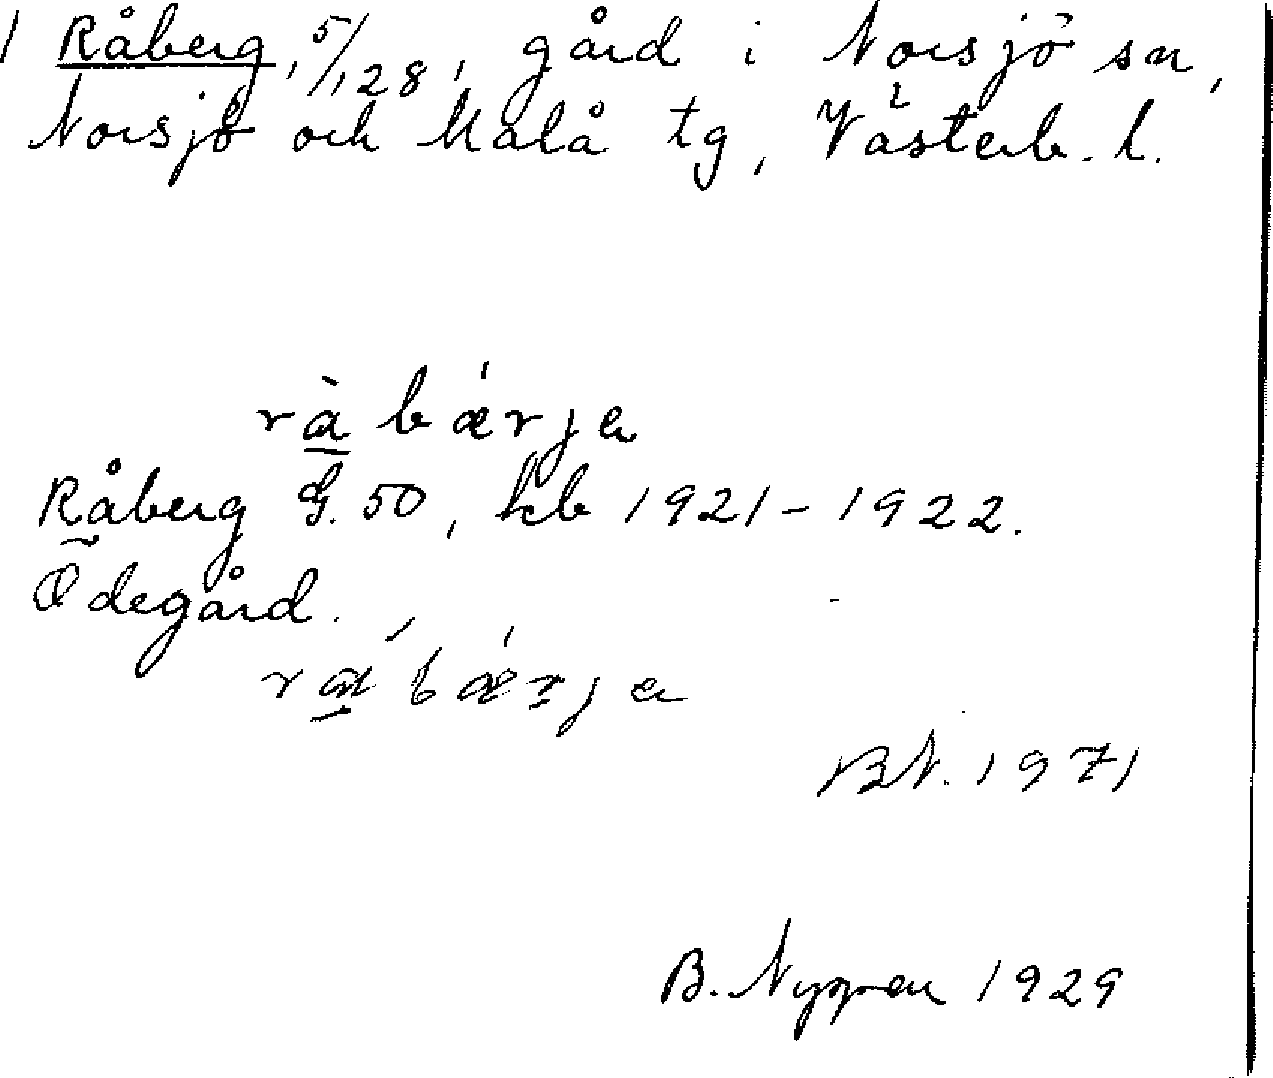 1 Råberg, 5/128, gård i Norsjö sn,
Norsjö och Malå tg, Västerb. l.
rɑ̀ bǽrje
Råberg G. 50, kb 1921-1922.
Ödegård.
rɑ́ bǽrje
BN. 1971
B. Nygren 1929